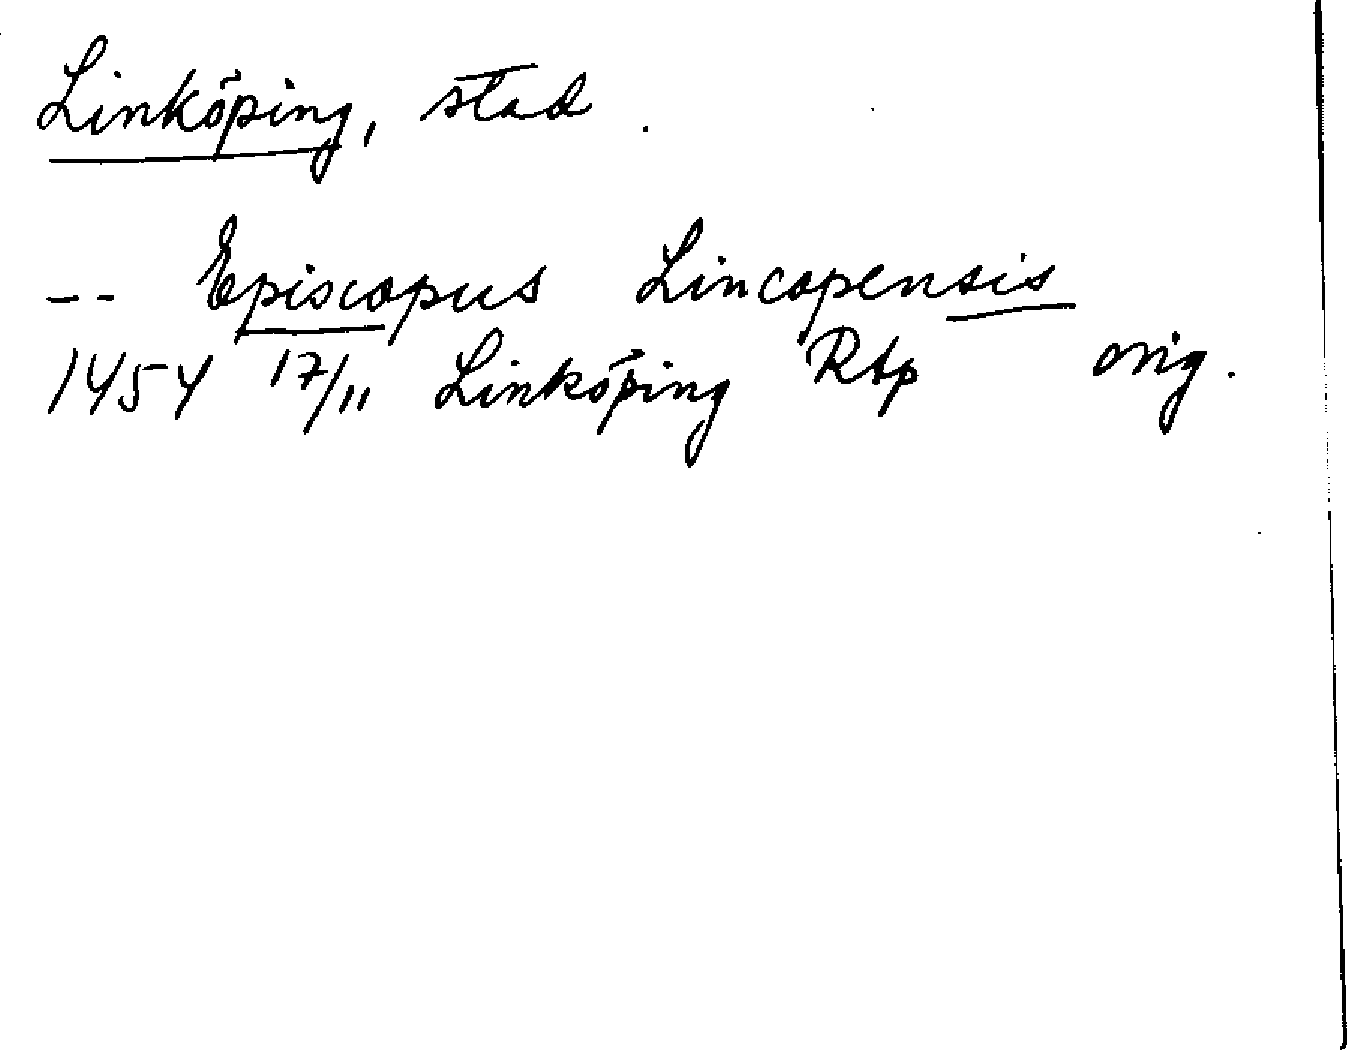 Linköping, stad.
-- Episcopus Lincopensis
1454 17/11 Linköping Rtp orig.